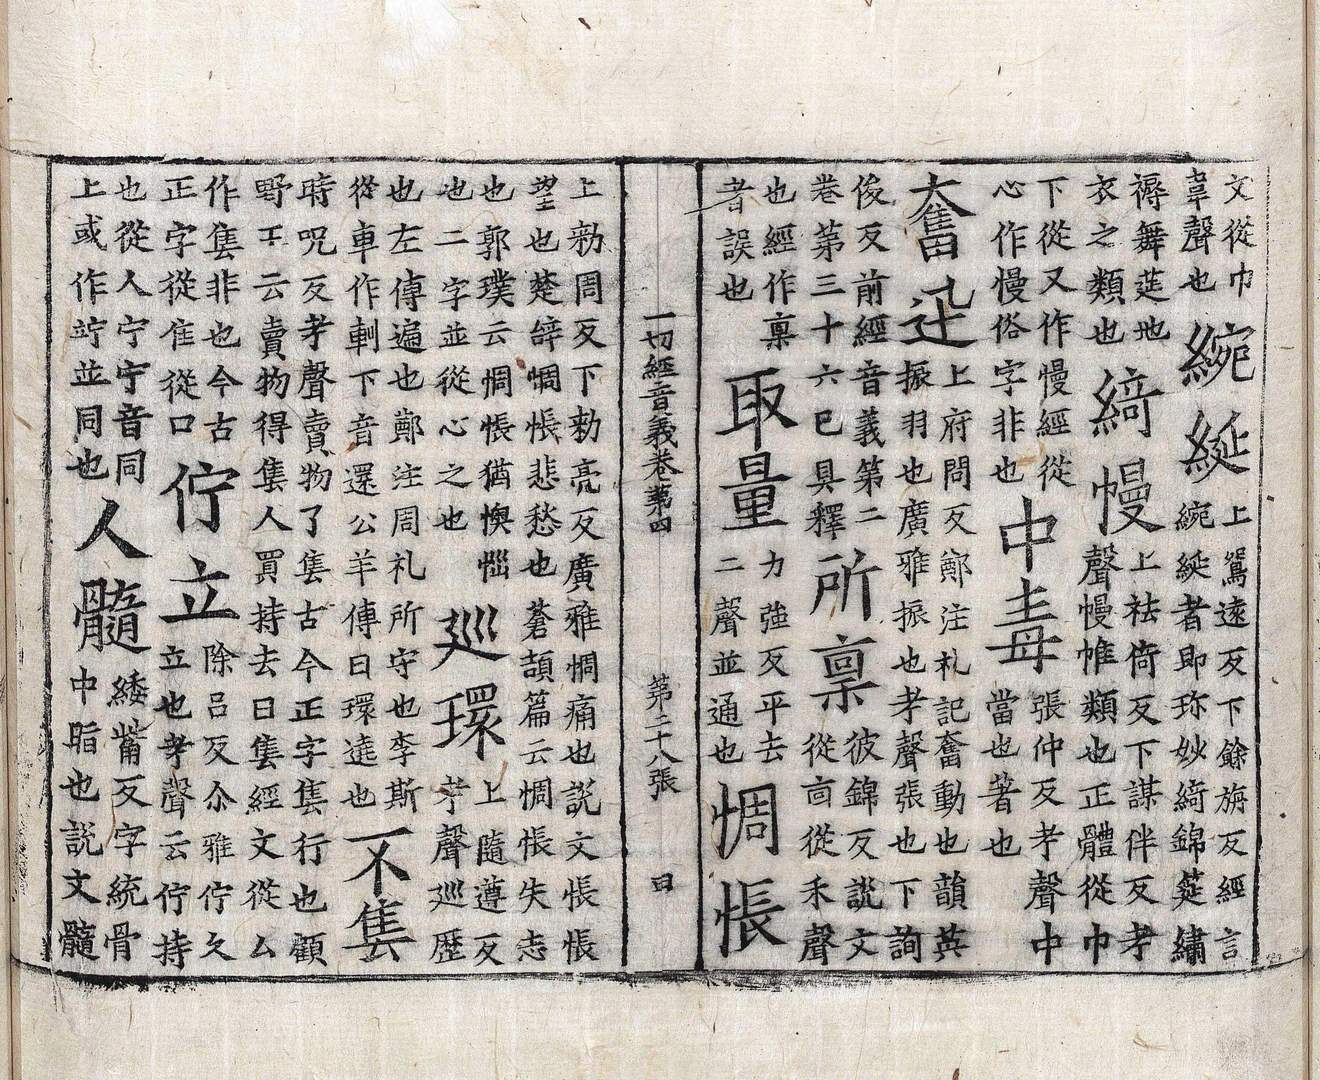 文從巾
韋聲也
綩綖
上鴛遠反下餘旃反經言
綩綖者即珎妙綺錦筵繡
褥舞莚地
衣之類也
綺幔
上袪倚反下謀伴反考
聲幔帷類也正體從巾
下從又作慢經從
心作慢俗字非也
中毒
張仲反考聲中
當也著也
奮迅
上府問反鄭注礼記奮動也韻英
振羽也廣雅振也考聲張也下詢
俊反前經音義第二
卷第三十六已具釋
所稟
彼錦反說文
從㐭從禾聲
也經作禀
者誤也
取量
力強反平去
二聲並通也
惆悵
一切經音義卷第四 第二十八張 曰
上勑周反下勑亮反廣雅惆痛也說文悵悵
望也楚辞惆悵悲愁也蒼頡篇云惆悵失志
也郭璞云惆悵猶懊惱
也二字並從心之也
巡環
上隨遵反
考聲巡歷
也左傳遍也鄭注周礼所守也李斯
從車作軕下音還公羊傳曰環遶也
不售
時呪反考聲賣物了售古今正字售行也顧
野王云賣物得售人買持去曰售經文從厶
作隻非也今古
正字從隹從口
佇立
除呂反尒雅佇久
立也考聲云佇持
也從人宁宁音同
上或作竚並同也
人髓
綏觜反字統骨
中脂也說文髓